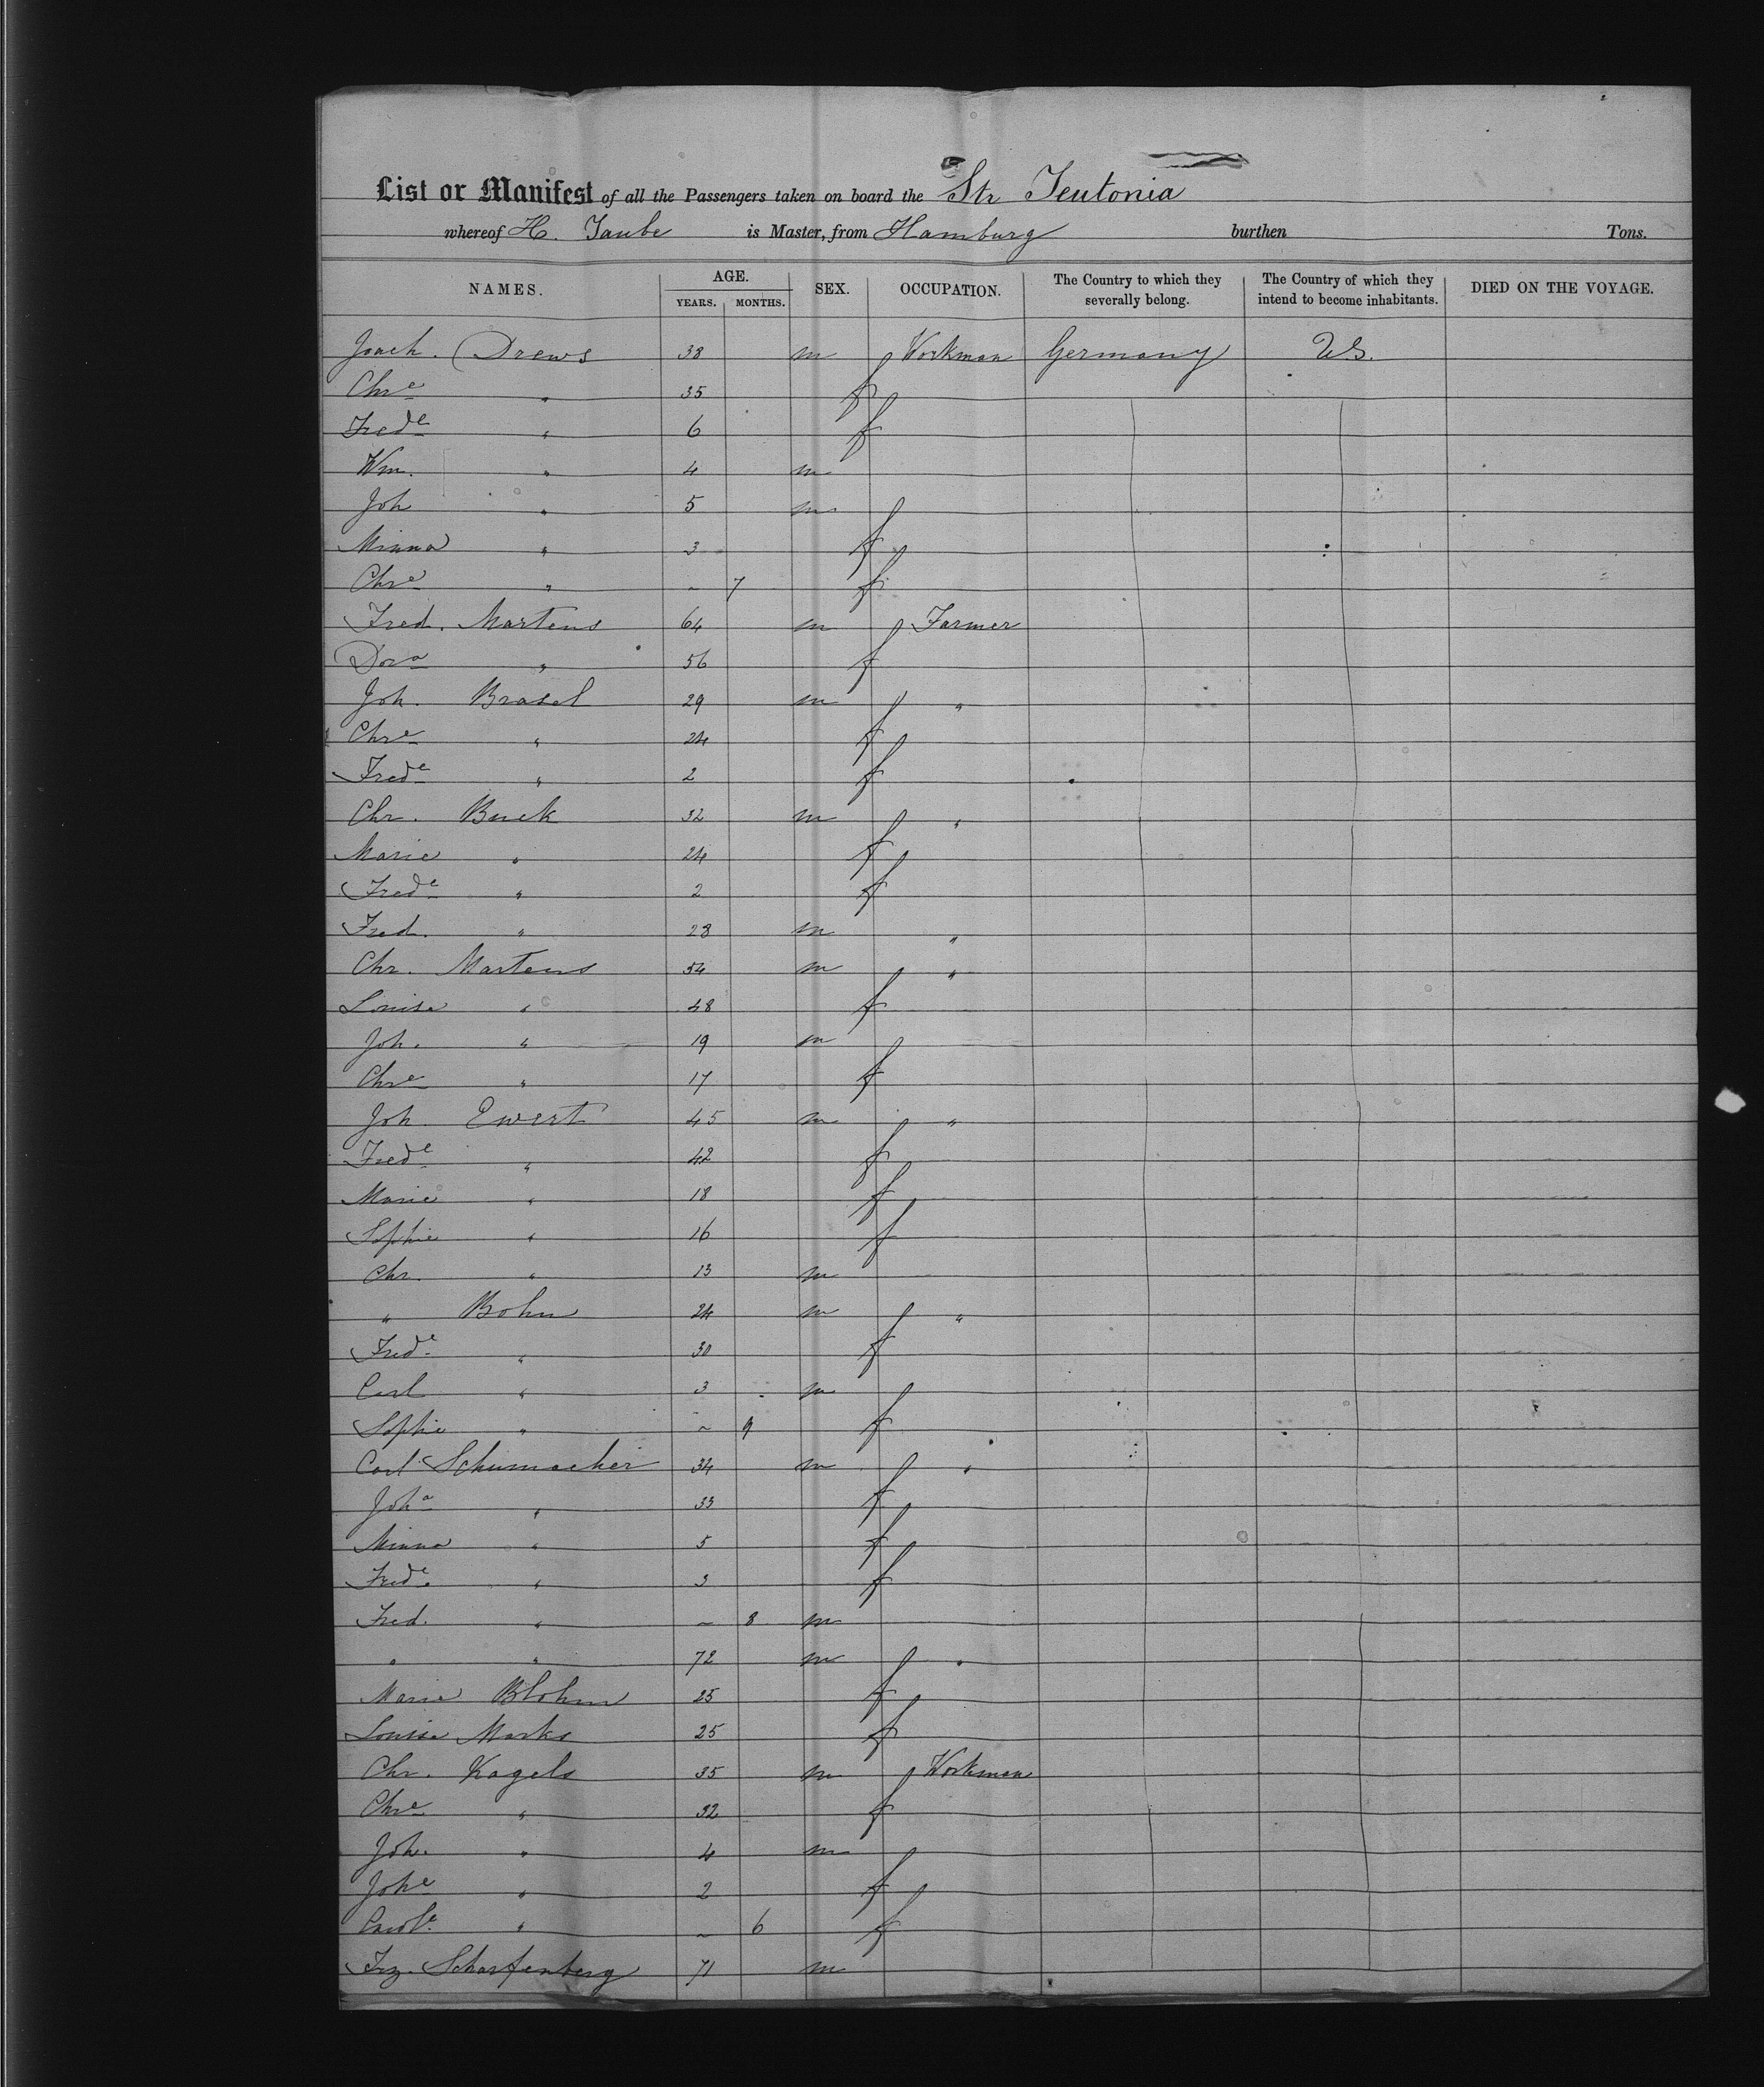 List or Manifest of all the Passengers taken on board the Str Teutonia
whereof H. Taube is Master, from Hamburg burthen Tons.
NAMES. AGE. YEARS. MONTHS. SEX. OCCUPATION. The Country to which they severally belong. The Country of which they intend to become inhabitants. DIED ON THE VOYAGE.
Joach. Drews 38 m Workman Germany U.S.
Chre " 35 f
Frede " 6 f
Wm. " 4 m
Joh " 5 m
Minna " 3 f
Chre " - 7 f
Fred. Martens 64 m Farmer
Dora " 56 f
Joh. Brasel 29 m "
Chre " 24 f
Frede " 2 f
Chr. Buck 32 m "
Marie " 24 f
Frede " 2 f
Fred. " 28 m "
Chr. Martens 54 m "
Louise " 48 f
Joh. " 19 m
Chre " 17 f
Joh. Ewert 45 m "
Frede " 42 f
Marie " 18 f
Sophie " 16 f
Chr. " 13 m
" Bohn 24 m "
Frede " 30 f
Carl " 3 m
Sophie " - 9 f
Carl Schumacher 34 m "
Joha " 33 f
Minna " 5 f
Frede " 3 f
Fred. " - 8 m
" " 72 m "
Marie Blohm 25 f
Louise Marks 25 f
Chr. Kagels 35 m Workman
Chre " 32 f
Joh. " 4 m
Johe " 2 f
Carole " - 6 f
Frz. Scharfenberg 71 m